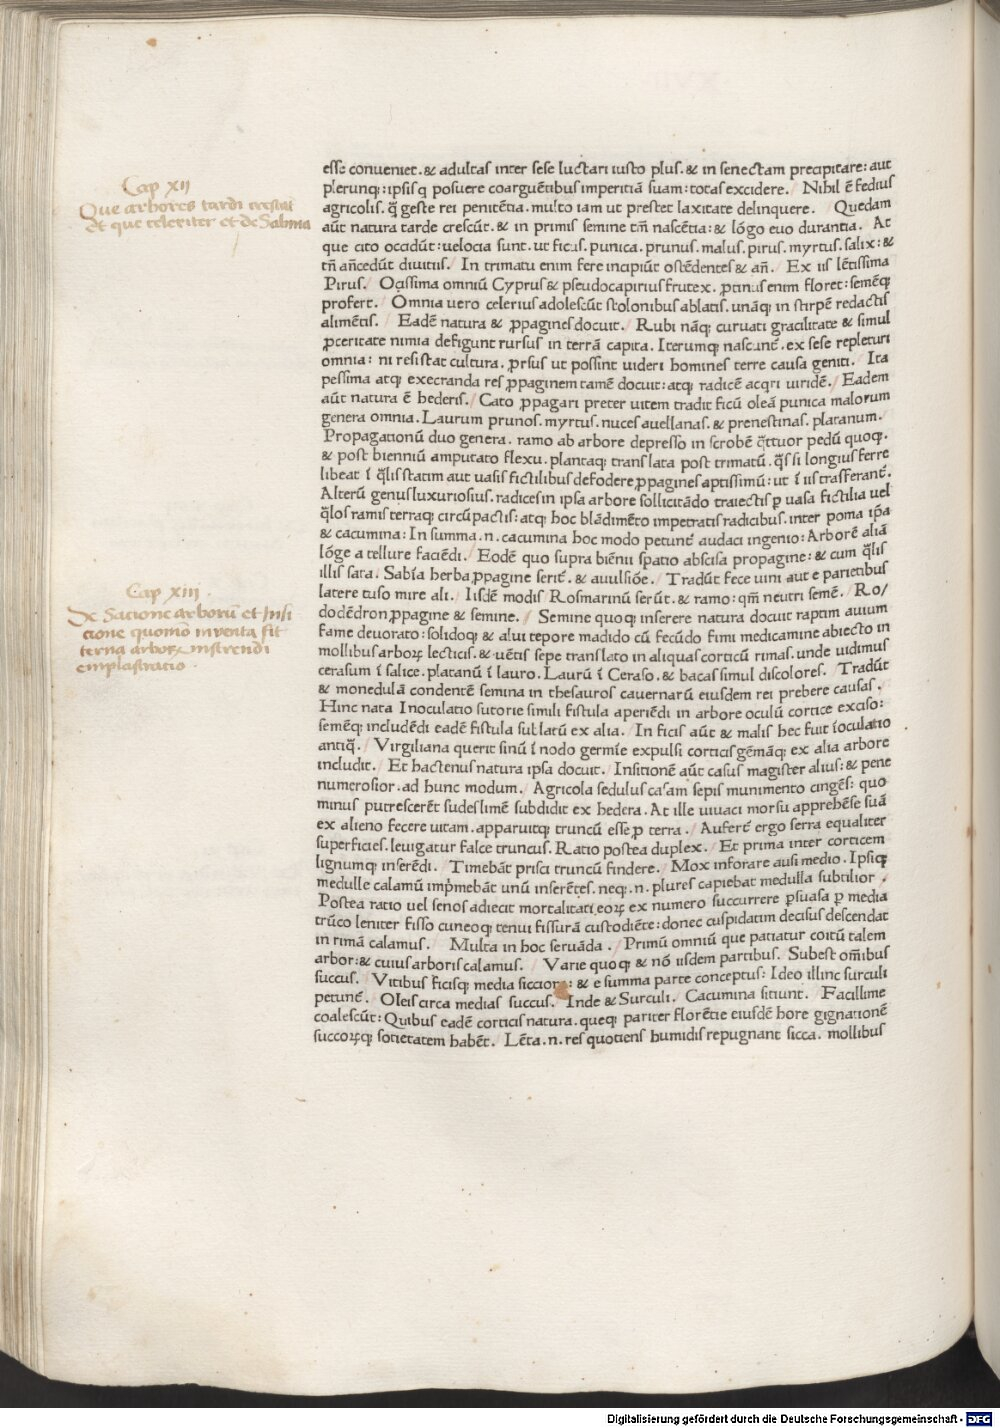 esse conveniet. & adultas inter sese luctari iusto plus. & in senectam precipitare: aut
Cap XII
plerunqꝫ: ipsis q̄ posuere coarguētibus imperitiā suam: totas excidere. / Nihil ē fedius
Que arbores tardi crescāt
agricolis. q̄ geste rei penitētia. multo iam ut prestet laxitate delinquere. / Quedam
et que celeriter et de Sabina
aūt natura tarde crescūt. & in primis semine tm̄ nascētia: & lōgo euo durantia. / At
que cito occidūt: uelocia sunt. ut ficus. punica. prunus. malus. pirus. myrtus. salix: &
tn̄ an̄cedūt diuitiis. / In trimatu enim fere incipiūt ostēdentes & an̄. / Ex iis lētissima
Pirus. / Ocissima omniū Cyprus & pseudocapirius frutex. ꝓtinus enim floret: semēqꝫ
profert. / Omnia uero celerius adolescūt stolonibus ablatis. unāqꝫ in stirpē redactis
alimētis. / Eadē natura & ꝓpagines docuit. / Rubi nāqꝫ curuati gracilitate & simul
ꝓceritate nimia defigunt rursus in terrā capita. Iterumqꝫ nascunt̄. ex sese repleturi
omnia: ni resistat cultura. ꝓrsus ut possint uideri homines terre causa geniti. / Ita
pessima atqꝫ execranda res ꝓpaginem tamē docuit: atqꝫ radicē acq̄ri uiridē. / Eadem
aūt natura ē hederis. / Cato ꝓpagari preter uitem tradit ficū oleā punica malorum
genera omnia. Laurum prunos. myrtus. nuces auellanas. & prenestinas. platanum.
Propagationū duo genera. ramo ab arbore depresso in scrobē q̄ttuor pedū quoqꝫ.
& post bienniū amputato flexu. plantaqꝫ translata post trimatū. q̄s si longius ferre
libeat ī q̄lis statim aut uasis fictilibus defodere ꝓpagines aptissimū: ut ī iis trasferant̄.
Alterū genus luxuriosius. radices in ipsa arbore sollicitādo traiectis ꝑ uasa fictilia uel
q̄los ramis terraqꝫ circūpactis: atqꝫ hoc blādimēto impetratis radicibus. inter poma ip̄a
& cacumina: In summa .n. cacumina hoc modo petunt̄ audaci ingenio: Arborē aliā
lōge a tellure faciēdi. / Eodē quo supra biēnii spatio abscisa propagine: & cum q̄lis
illis sata. Sabīa herba ꝓpagine serit̄. & auulsiōe. / Tradūt fece uini aut e parietibus
Cap XIII.
latere tuso mire ali. / Iisdē modis Rosmarinū serūt. & ramo: qm̄ neutri semē. / Ro/
De Sacione arborū et Insi
dodēdron ꝓpagine & semine. / Semine quoqꝫ inserere natura docuit raptim auium
cione quomō inventa sit
fame deuorato: solidoqꝫ & alui tepore madido cū fecūdo fimi medicamine abiecto in
terna arborꝝ inserendi
mollibus arborꝝ lecticis. & uētis sepe translato in aliquas corticū rimas. unde uidimus
emplastratio
cerasum ī salice. platanū ī lauro. Laurū ī Ceraso. & bacas simul discolores. / Tradūt
& monedulā condentē semina in thesauros cauernarū eiusdem rei prebere causas. /
Hinc nata Inoculatio sutorie simili fistula aperiēdi in arbore oculū cortice exciso:
semēqꝫ includēdi eadē fistula sublatū ex alia. / In ficis aūt & malis hec fuit īoculatio
antiq̄. / Virgiliana querit sinū ī nodo germīe expulsi corticis gēmāqꝫ ex alia arbore
includit. / Et hactenus natura ipsa docuit. / Insitionē aūt casus magister alius: & pene
numerosior. ad hunc modum. / Agricola sedulus casam sepis munimento cingēs: quo
minus putrescerēt sudes limē subdidit ex hedera. At ille uiuaci morsu apprehēse suā
ex alieno fecere uitam. apparuitqꝫ truncū esse ꝓ terra. / Aufert̄ ergo serra equaliter
superficies. leuigatur falce truncus. Ratio postea duplex. / Et prima inter corticem
lignumqꝫ inserēdi. / Timebāt prisci truncū findere. / Mox inforare ausi medio. Ipsiqꝫ
medulle calamū imp̄mebāt unū inserētes. neqꝫ .n. plures capiebat medulla subtilior. /
Postea ratio uel senos adiecit mortalitati eorꝝ ex numero succurrere ꝑsuasa ꝑ media
trūco leniter fisso cuneoqꝫ tenui fissurā custodiēte: donec cuspidatim decisus descendat
in rimā calamus. / Multa in hoc seruāda. / Primū omniū que patiatur coitū talem
arbor: & cuius arboris calamus. / Varie quoqꝫ & nō iisdem partibus. Subest om̄ibus
succus. / Vitibus ficisqꝫ media sicciora: & e summa parte conceptus: Ideo illinc surculi
petunt̄. / Oleis circa medias succus. / Inde & Surculi. / Cacumina sitiunt. / Facillime
coalescūt: Quibus eadē corticis natura. queqꝫ pariter florētie eiusdē hore gignationē
succorꝝqꝫ societatem habēt. / Lēta .n. res quotiens humidis repugnant sicca. mollibus
Digitalisierung gefördert durch die Deutsche Forschungsgemeinschaft - DFG